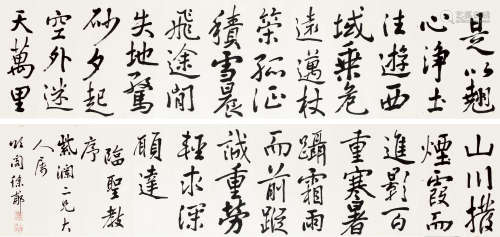 是以翹
心淨土
法遊西
域乘危
遠邁杖
策孤征
積雪晨
飛途閒
失地驚
砂夕起
空外迷
天萬里
山川撥
煙霞而
進影百
重寒暑
躡霜雨
而前蹤
誠重勞
輕求深
願達
臨聖教
序
二兄大
人屬
徐郙